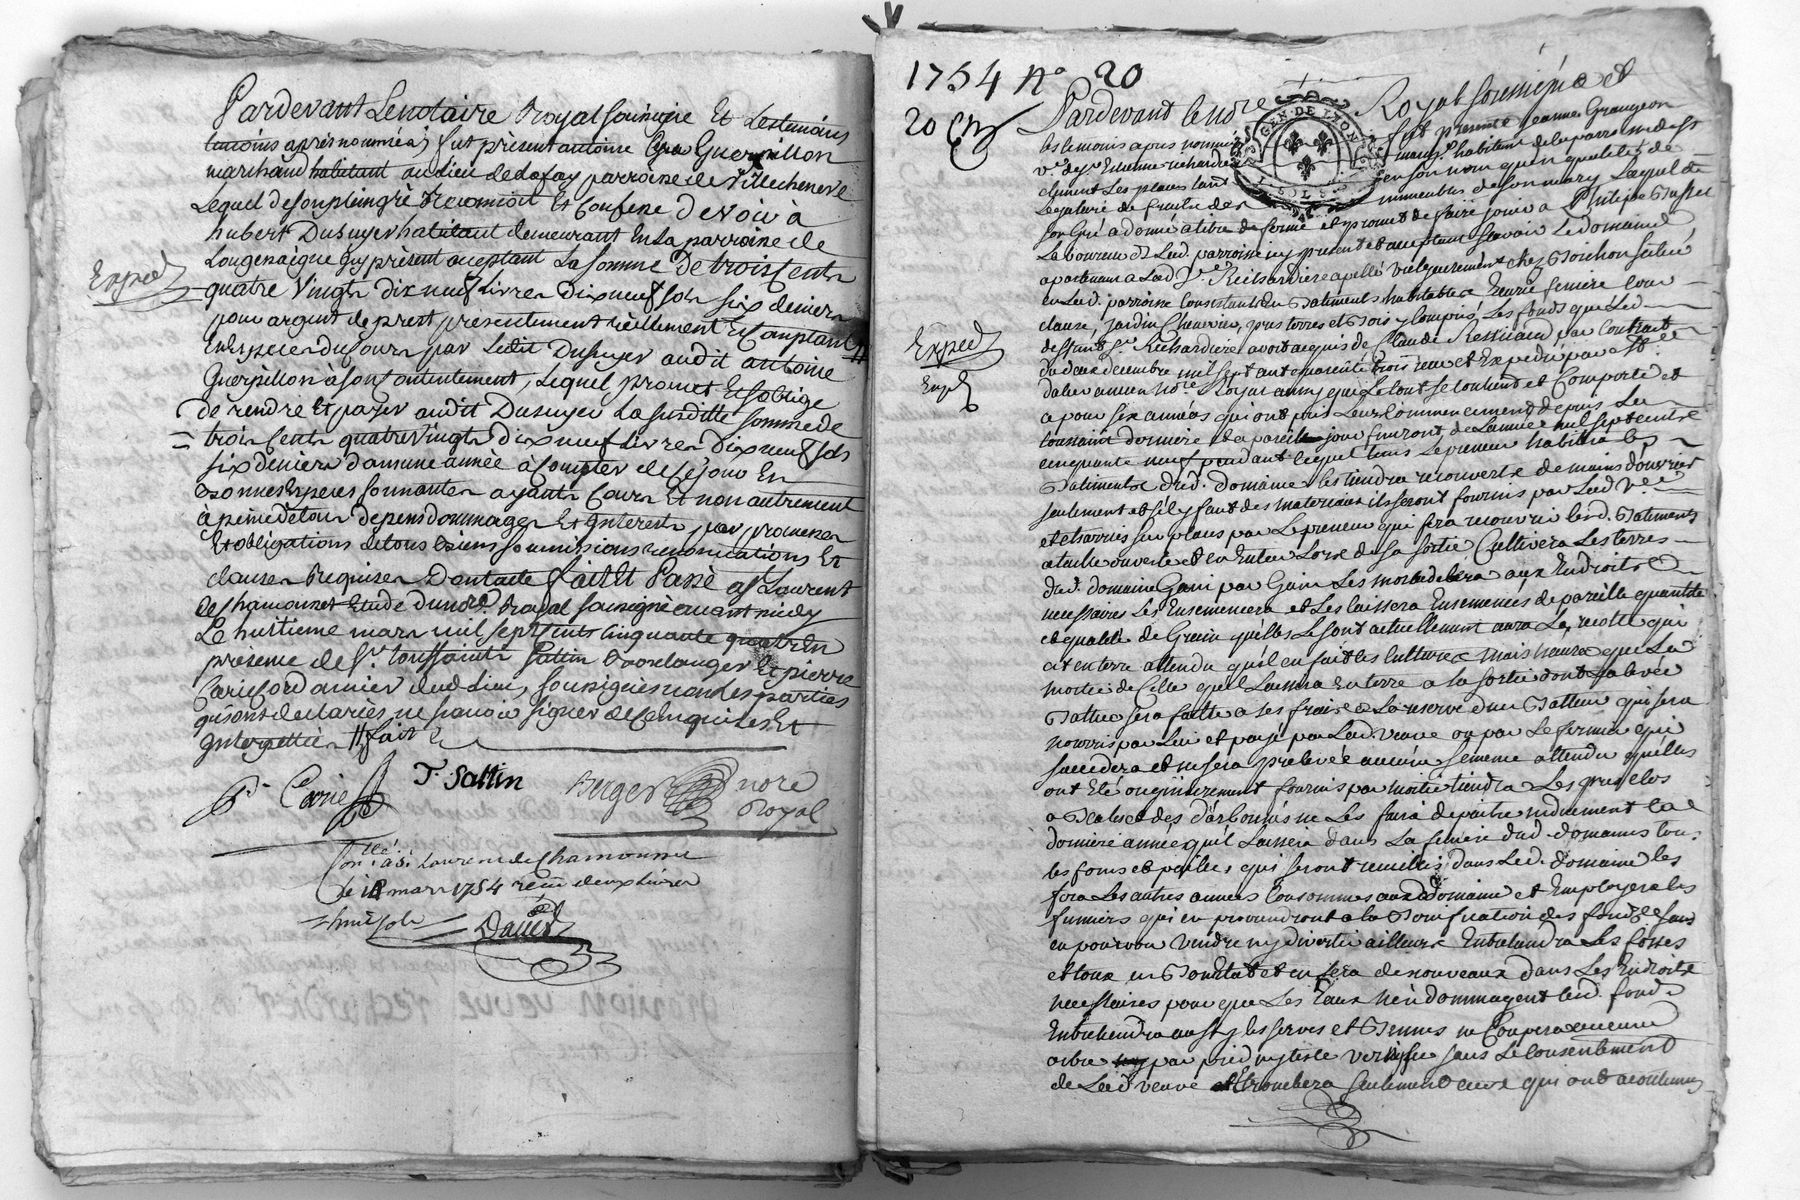 Pardevant Lenotaire Royal sousigné Et Lestemoins
temoins aprésnommées, fut présent antoine Guerpillon
marchand habitant au Lieu delafay parroisse de Villechenéve
Lequel desonpleingré Et Confesse devoir à
hubert Dusuyer habitant demeurant En La parroisse de
Longesaigne icy présent aceptant La somme De troiscents
quatre Vingts dixneuf Livres Dixneuf sols six deniers
pour argent de prest présentement réellement Et Comptant
par Ledit Dusuyer audit antoine
Guerpillon àsoncontentement, Lequel promet Et soblige
de rendre Et payer audit Dusuyer La susditte somme de
trois Cents quatreVingts Dixneuf Livres Dixneuf sols
six deniers dans une année à Compter de Ce jour En
bonnes Especes sonnantes ayants Cours Et non autrement
à peine de tous depens dommages Et Interests par promesses
Et obligations de tous sesbiens soumissions renonciations Et
clauses requises Dontacte fait Et Passé a St Laurent
de Chamousset Etude dunore Royal sousigné avant midy
Le huitieme mars mil septCents Cinquante quatre En
présence de Sr. toussaints Sattin boulanger Et pierre
Carie Cordonnier dud. Lieu, sousignés nonLes parties
quisont declariés ne savoir signer de Ce Enquises Et
Interpellées
Exped
P. Carie
T. Sattin
Berger nore Royal
Con.llé à St. Laurent de Chamousset
le 18 mars 1754 reçu deux Livres
huit sols
David
1754 No 20
20
Pardevant le nore Royal soussigné et
les temoins apres nommés fut presente Jeanne Grangeon
ve. de sr. Etienne richardiere march. habitant de la parroisse de St
Clement Les places tant en son nom qu'en qualité de
immeubles de son mary Laquelle de
son Gré a donné a titre de ferme et promet de faire jouir a Philipe
Laboureur de Lad. parroisse icy present et acceptant sçavoir Le domaine
apartenant a Lad. Ve. Richardiere apellé vulgairement chez Poichon situé
en Lad. parroisse Consistant en Batiments habitable Ecurie feniere cour
clause, jardin Cheneviere, prés terres et Bois y Compris Les fonds que Led.
deffunt Sr. Richardiere avoit acquis de Claude par Contrait
du deux decembre mil sept cent quarente trois reçu et Expedié par
Exped
ancien nore. Royal ainsy que Le tout se contient et Comporte et
ce pour six années qui ont pris Leur Commencement depuis La
toussaint derniere et a pareil jour finiront de L'année mil sept cents
cinquante neuf pendant lequel tems Le preneur habitera les
Batiments dud. domaine les tiendra recouverts de mains d'ouvrier
seulement et s'il y faut des materiaux ils seront fournis par Lad. Ve.
et charriés sur place par Le preneur qui fera recouvrir lesd. Batiments
a taille ouverte et en Entier Lors de sa sortie Cultivera Les terres
dud. domaine Gain par Gain Les aux Endroits
necessaires Les Ensemencera et Les laissera Ensemencés de pareille quantité
et qualité de Grain qu'elles Le sont actuellement aura La recolte qui
est en terre attendu qu'il en fait les Cultures mais n'aura que La
moitié de Celle qu'il Laissera En terre a la sortie dont la levée
Battue sera faitte a ses frais a La reserve d'un Batteur qui sera
nourris par Lui et payé par Lad. veuve ou par Le fermier qui
succedera et ne sera prelevée aucune semence attendu qu'elles
ont Eté originairement fournies par moitié tiendra Les prés clos
ne Les faira depaitre nuement La
derniere année qu'il Laissera dans La feniere dud. domaine tous
les foins et pailles qui seront recueillis dans Led. domaine les
fera Les autres années Consommer aud. domaine et Employera les
fumiers qui en proviendront a la Bonification des fonds sans
en pouvoir vendre ny divertir ailleurs Entretiendra Les fosses
et tous en Bon Etat et en fera de nouveaux dans Les Endroits
necessaires pour que Les Eaux n'Endommagent led. fonds
Entretiendra aussy les serves et ne Coupera aucun
arbre par pied ny teste verd ny sec sans Le Consentement
de Lad. veuve et Ebranchera seulement ceux qui ont acoutumés